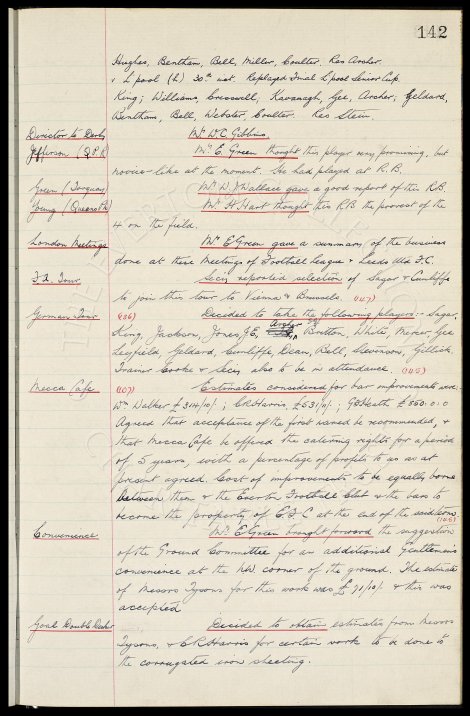 142
Hughes, Bentham, Bell, Miller, Coulter. Res Archer.
v. L'pool (h) 30th inst. Replayed Final L'pool Senior Cup.
King; Williams, Cresswell; Kavanagh, Gee, Archer; Geldard,
Bentham, Bell, Webster, Coulter. Res Stein.
Director to Derby Mr. W.C. Gibbins.
Jefferson (Q.P.R) Mr. E. Green thought this player very promising, but
novice-like at the moment. He had played at R.B.
Green (Torquay) Mr. W.J. Wallace gave a good report of this R.B.
Young (Queens Pk) Mr. H. Hart thought this R.B. the poorest of the
4 on the field.
London Meetings Mr. E. Green gave a summary of the business
done at these Meetings of Football League & Leeds Utd F.C.
F.A. Tour Secy reported selection of Sagar & Cunliffe
to join this tour to Vienna & Brussels. (147)
German Tour (136) Decided to take the following players:- Sagar,
King, Jackson, Jones J.E, Archer Britton, White, Mercer, Gee
Leyfield, Geldard, Cunliffe, Dean, Bell, Stevenson, Gillick.
Trainer Cooke & Secy also to be in attendance. (145)
Mecca Cafe (107) Estimates considered for bar improvements were:
Wm Walker £314/10/-; C.R. Harris, £531/0/-; G. Heath £550.0.0
Agreed that acceptance of the first named be recommended, &
that Mecca Cafe be offered the catering rights for a period
of 5 years, with a percentage of profits to us as at
present agreed. Cost of improvements to be equally borne
between them & the Everton Football Club & the bars to
become the property of E.F.C at the end of the said term. (145)
Convenience Mr. E. Green brought forward the suggestion
of the Ground Committee for an additional Gentlemen's
convenience at the N.W. corner of the ground. The estimate
of Messrs Tysons for this work was £71/10/- & this was
accepted
Goal Double Decker Decided to obtain estimates from Messrs
Tysons, & C.R. Harris for certain work to be done to
the corrugated iron sheeting.